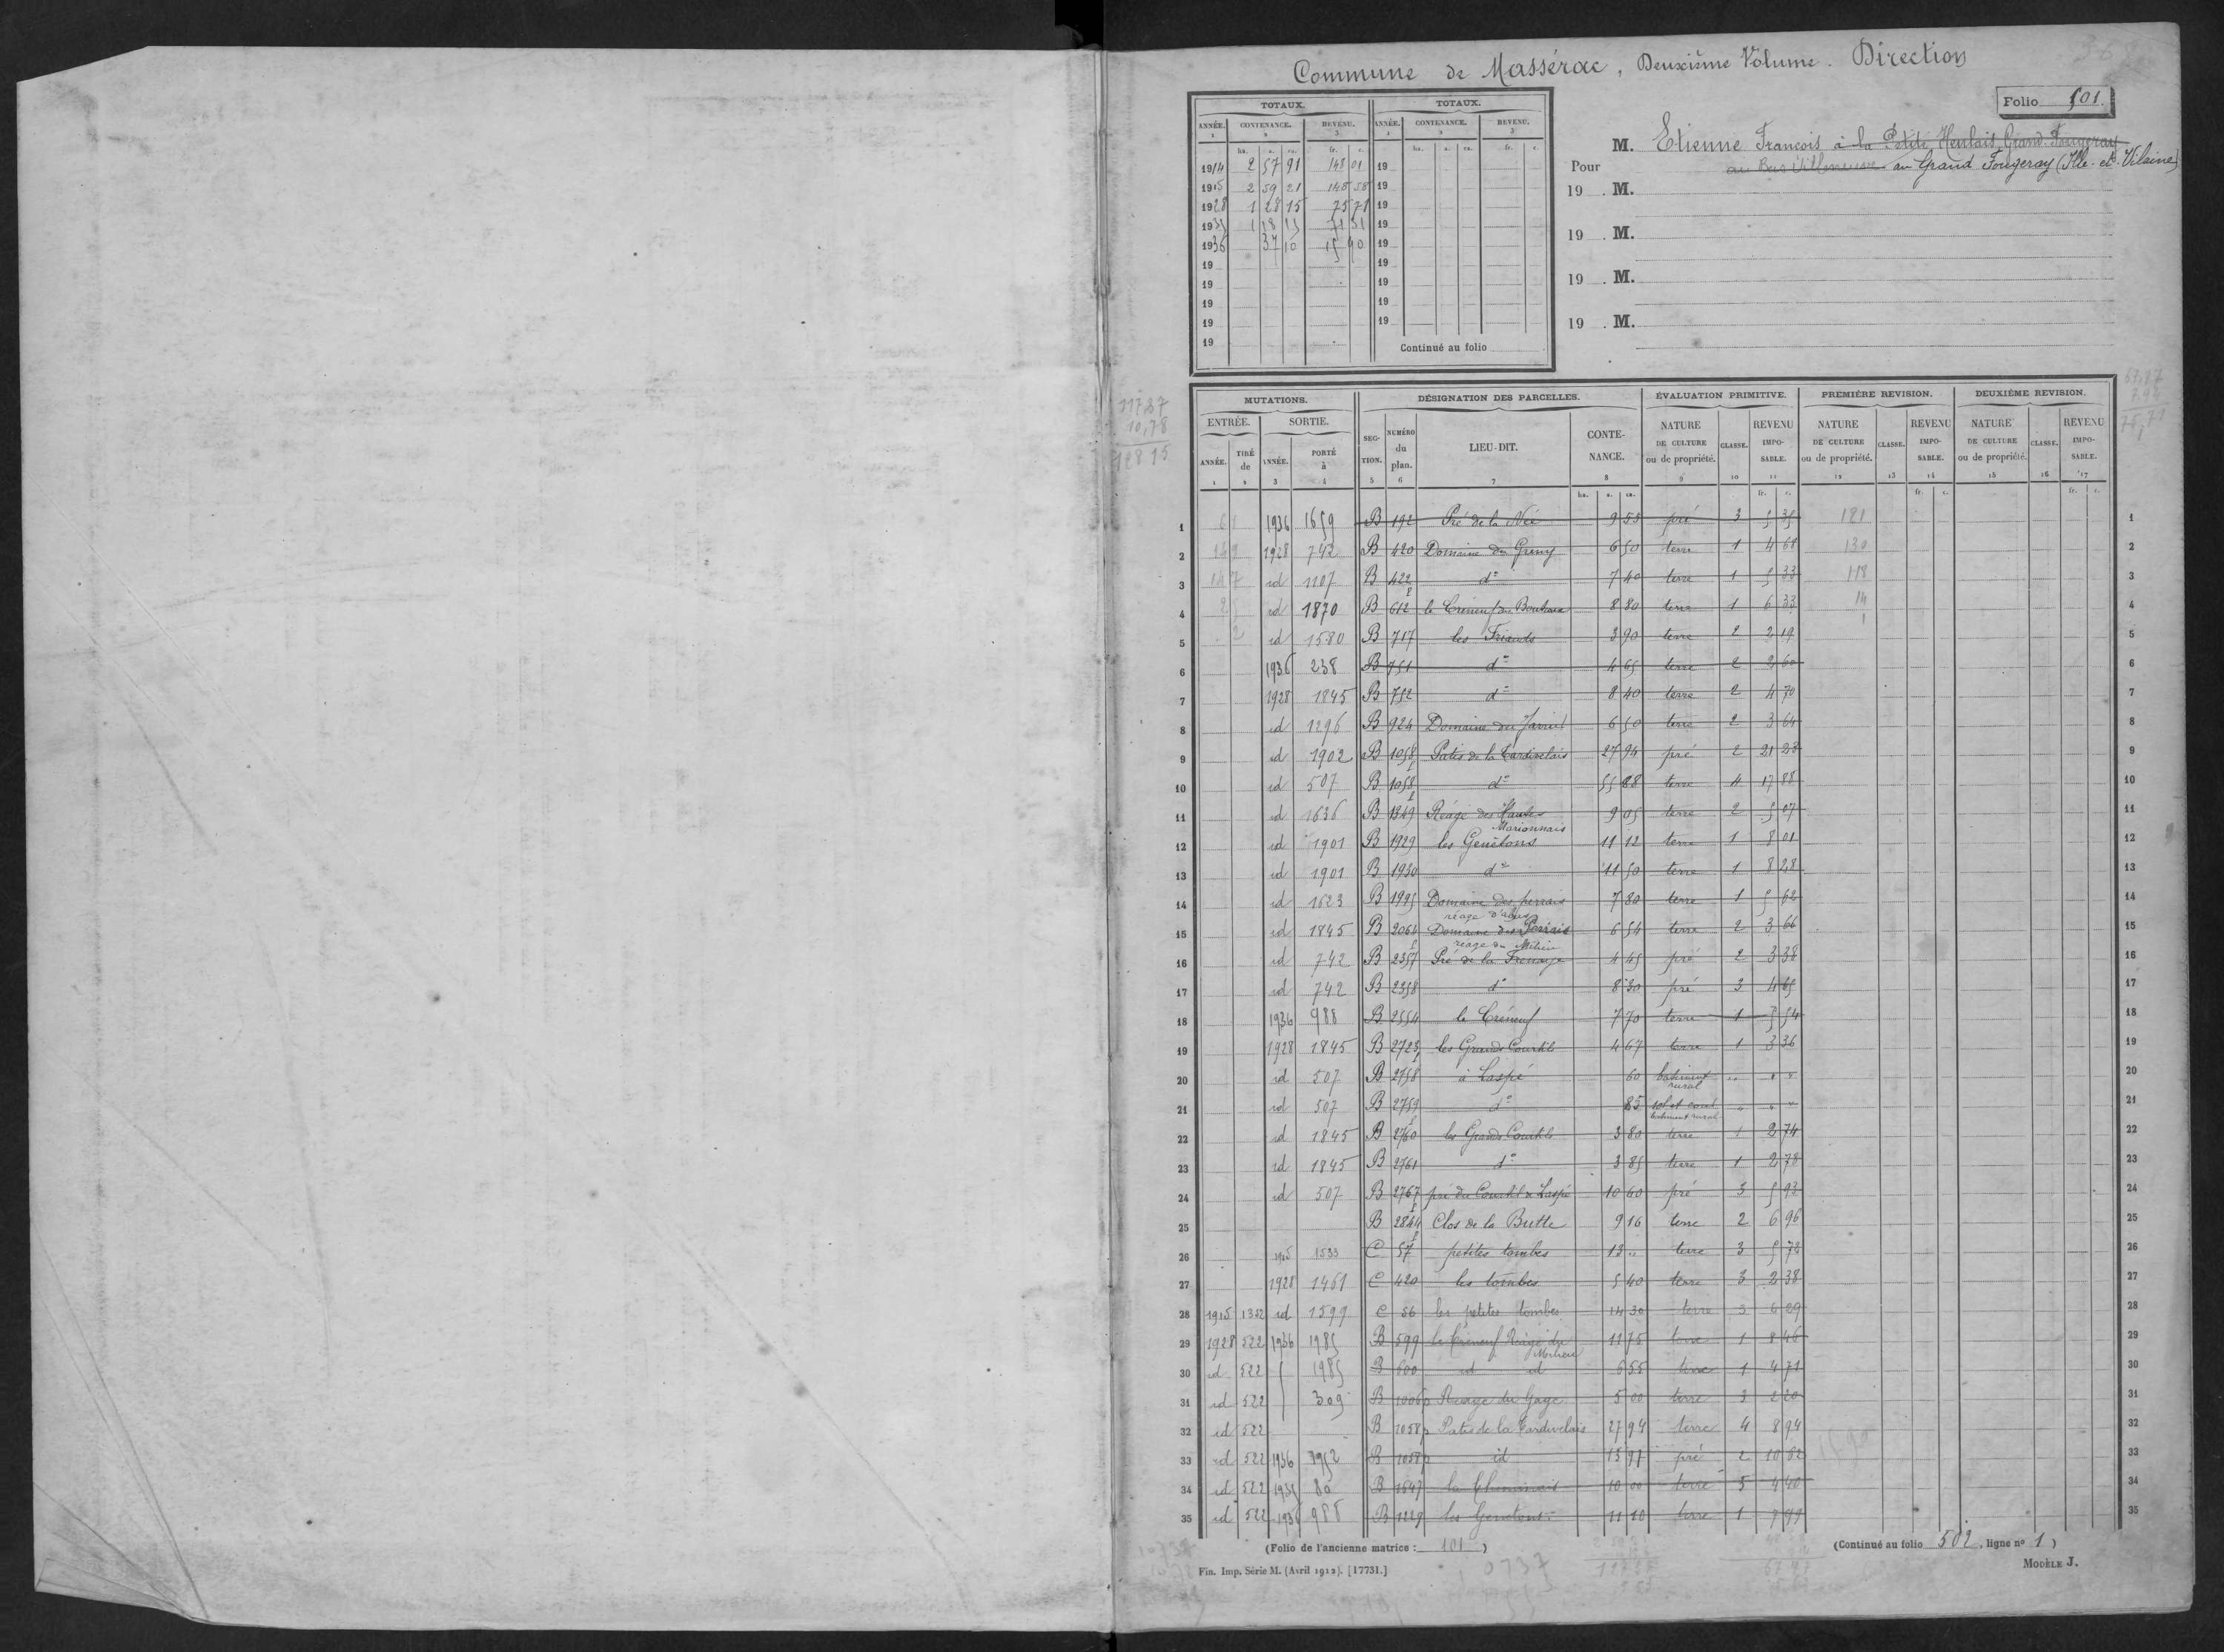 Commune de Massérac, Deuxième Volume. Direction
Folio 501.
TOTAUX. TOTAUX.
ANNÉE. CONTENANCE. REVENU. ANNÉE. CONTENANCE. REVENU.
1 2 3 1 2 3
ha. a. ca. fr. c. ha. a. ca. fr. c.
1914 2 57 91 148 01 19
1915 2 59 21 148 58 19
1928 1 28 15 75 71 19
1935 1 18 15 71 31 19
1936 37 10 15 90 19
19 19
19 19
19 19
19 19
19
Continué au folio
M. Etienne François à la Petite Heulais, Grand-Fougeray
Pour au Bas Villeneuve au Grand Fougeray (Ille-et-Vilaine)
19 . M.
19 . M.
19 . M.
19 . M.
117 37
10,78
128 15
67,77
7,92
75,71
MUTATIONS. DÉSIGNATION DES PARCELLES. ÉVALUATION PRIMITIVE. PREMIÈRE REVISION. DEUXIÈME REVISION.
ENTRÉE. SORTIE. SECTION. NUMÉRO du plan. LIEU-DIT. CONTENANCE. NATURE DE CULTURE ou de propriété. CLASSE. REVENU IMPOSABLE. NATURE DE CULTURE ou de propriété. CLASSE. REVENU IMPOSABLE. NATURE DE CULTURE ou de propriété. CLASSE. REVENU IMPOSABLE.
ANNÉE. TIRÉ de ANNÉE. PORTÉ à
1 2 3 4 5 6 7 8 9 10 11 12 13 14 15 16 17
ha. a. ca. fr. c. fr. c. fr. c.
1 1936 1659 B 192 Pré de la Née 9 55 pré 3 5 35 181 1
2 1928 742 B 420 Domaine du Greny 6 50 terre 1 4 68 130 2
3 147 id 1107 B 422 d° 7 40 terre 1 5 33 118 3
4 id 1870 B 612 p le Créneuf du Bouteau 8 80 terre 1 6 33 14 4
5 2 id 1580 B 717 les Friauds 3 90 terre 2 2 19 1 5
6 1936 238 B 751 d° 4 65 terre 2 2 60 6
7 1928 1845 B 752 d° 8 40 terre 2 4 70 7
8 id 1296 B 924 Domaine du Javriel 6 50 terre 2 3 64 8
9 id 1902 B 1058 p Patis de la Tardivelais 27 94 pré 2 21 23 9
10 id 507 B 1058 p d° 55 88 terre 4 17 88 10
11 id 1636 B 1349 Réage des Hautes Marionnais 9 05 terre 2 5 07 11
12 id 1901 B 1929 les Genêtons 11 12 terre 1 8 01 12
13 id 1901 B 1930 d° 11 50 terre 1 8 28 13
14 id 1623 B 1995 Domaine des perrais réage d'abas 7 80 terre 1 5 62 14
15 id 1845 B 2064 p Domaine des Perrais réage du Milieu 6 54 terre 2 3 66 15
16 id 742 B 2357 Pré de la Frenaye 4 45 pré 2 3 38 16
17 id 742 B 2358 d° 8 30 pré 3 4 65 17
18 1936 988 B 2554 le Créneuf 7 70 terre 1 5 54 18
19 1928 1845 B 2723 p les Grands Courtils 4 67 terre 1 3 36 19
20 id 507 B 2758 à Laspé 60 batiment rural " " " 20
21 id 507 B 2759 p d° 85 sol et cour batiment rural " " " 21
22 id 1845 B 2760 les Grands Courtils 3 80 terre 1 2 74 22
23 id 1845 B 2761 d° 3 85 terre 1 2 78 23
24 id 507 B 2767 p pré du Courtil de Laspé 10 60 pré 3 5 93 24
25 B 2844 p Clos de la Butte 9 16 terre 2 6 96 25
26 1915 1533 C 57 petites tombes 13 " terre 3 5 72 26
27 1928 1461 C 420 les tombes 5 40 terre 3 2 38 27
28 1915 1352 id 1599 C 56 les petites tombes 14 30 terre 3 6 29 28
29 1928 522 1936 1985 B 599 le Créneuf Réage du Milieu 11 75 terre 1 8 46 29
30 id 522 1985 B 600 id id 6 55 terre 1 4 71 30
31 id 522 309 B 1006 p Réage du Gage 5 00 terre 3 2 20 31
32 id 522 B 1058 p Patis de la Tardivelais 27 94 terre 4 8 94 32
33 id 522 1936 1952 B 1058 p id 13 97 pré 2 10 62 33
34 id 522 1935 80 B 1647 la Cheminais 10 00 terre 3 4 40 34
35 id 522 1936 988 B 1229 les Genetons 11 10 terre 1 7 99 35
(Folio de l'ancienne matrice : 101 )
(Continué au folio 502, ligne n° 1 )
Fin. Imp. Série M. (Avril 1912). [17731.]
MODÈLE J.
0737